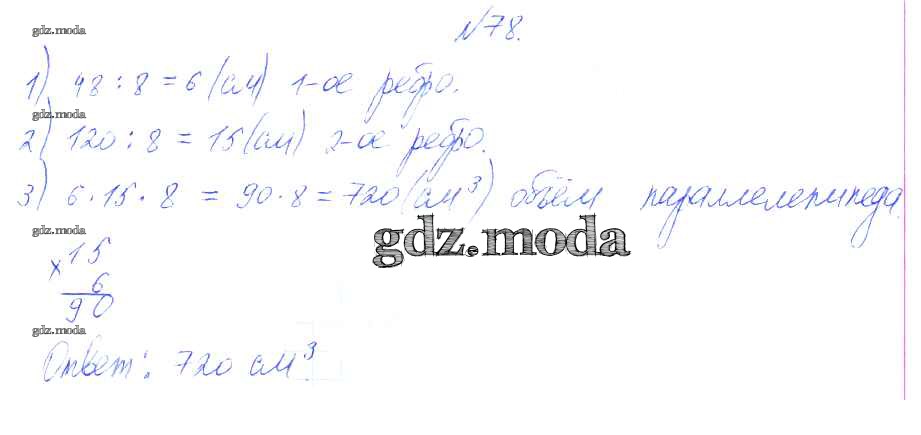 gdz.moda
№78.
1) 48 : 8 = 6 (см) 1-ое ребро.
gdz.moda
2) 120 : 8 = 15 (см) 2-ое ребро.
3) 6 · 15 · 8 = 90 · 8 = 720 (см³) объём параллелепипеда.
gdz.moda
gdz.moda
× 15
6
90
gdz.moda
Ответ: 720 см³.